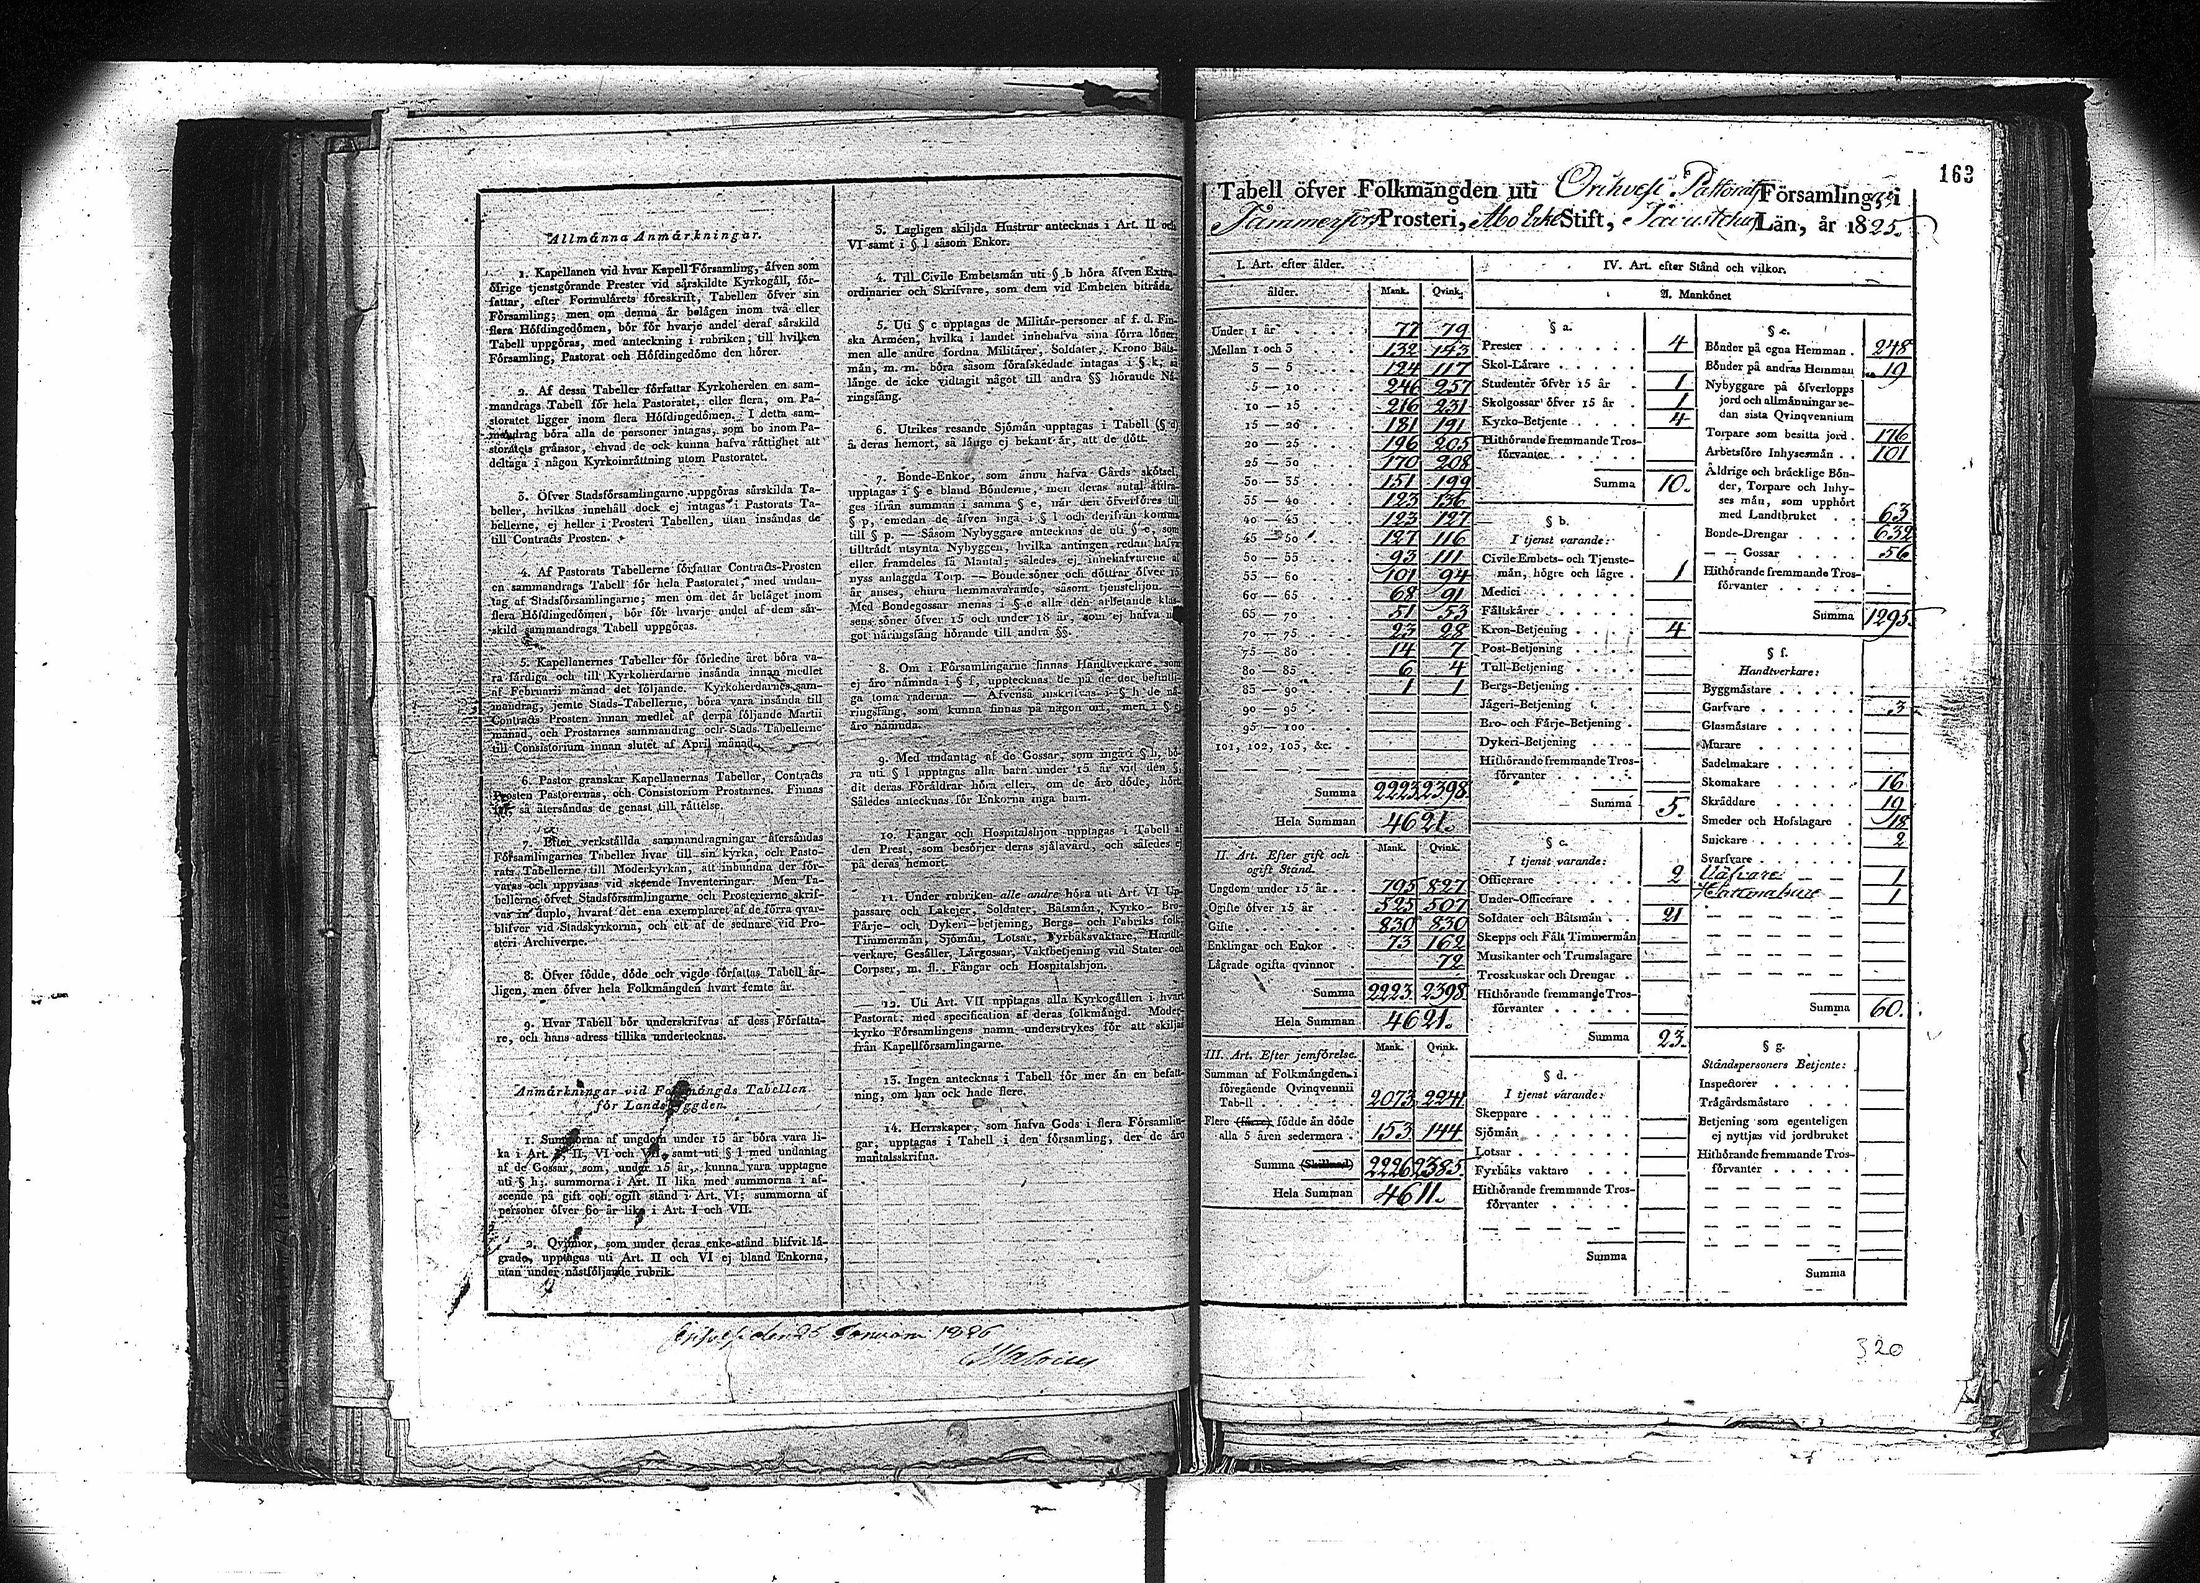 Allmänna Anmärkningar.
1. Kapellanen vid hvar Kapell Församling, äfven som
öfrige tjenstgörande Prester vid särskildte Kyrkogäll, för-
fattar, efter Formulärets föreskrift, Tabellen öfver sin
Församling; men om denna är belägen inom två eller
flera Höfdingedömen, bör för hvarje andel deraf särskild
Tabell uppgöras, med anteckning i rubriken, till hvilken
Församling, Pastorat och Höfdingedöme den hörer.
2. Af dessa Tabeller författar Kyrkoherden en sam-
mandrags Tabell för hela Pastoratet, eller flera, om Pa-
storatet ligger inom flera Höfdingedömen. I detta sam-
mandrag böra alla de personer intagas, som bo inom Pa-
storatets gränsor, ehvad de ock kunna hafva rättighet att
deltaga i någon Kyrkoinrättning utom Pastoratet.
3. Öfver Stadsförsamlingarne uppgöras särskilda Ta-
beller, hvilkas innehåll dock ej intagas i Pastorats Ta-
bellerne, ej heller i Prosteri Tabellen, utan insändas de
till Contracts Prosten.
4. Af Pastorats Tabellerne författar Contracts-Prosten
en sammandrags Tabell för hela Pastoratet, med undan-
tag af Stadsförsamlingarne; men om det är beläget inom
flera Höfdingedömen, bör för hvarje andel af dem sär-
skild sammandrags Tabell uppgöras.
5. Kapellanernes Tabeller för förledne året böra va-
ra färdiga och till Kyrkoherdarne insända innan medlet
af Februarii månad det följande. Kyrkoherdarnes sam-
mandrag, jemte Stads-Tabellerne, böra vara insända till
Contracts Prosten innan medlet af derpå följande Martii
månad, och Prostarnes sammandrag och Stads Tabellerne
till Consistorium innan slutet af April månad.
6. Pastor granskar Kapellanernas Tabeller, Contracts
Prosten Pastorernas, och Consistorium Prostarnes. Finnas
fel, så återsändas de genast till rättelse.
7. Efter verkställda sammandragningar återsändas
Församlingarnes Tabeller hvar till sin kyrka, och Pasto-
rats Tabellerne till Moderkyrkan, att inbundna der för-
varas och uppvisas vid skeende Inventeringar. Men Ta-
bellerne öfver Stadsförsamlingarne och Prosterierne skrif-
vas in duplo, hvaraf det ena exemplaret af de förra qvar-
blifver vid Stadskyrkorna, och ett af de sednare vid Pro-
steri Archiverne.
8. Öfver födde, döde och vigde författas Tabell år-
ligen, men öfver hela Folkmängden hvart femte år.
9. Hvar Tabell bör underskrifvas af dess Författa-
re, och hans adress tillika undertecknas.
Anmärkningar vid Folkmängds Tabellen
för Landsbyggden.
1. Summorna af ungdom under 15 år böra vara li-
ka i Art. I, II, VI och VII, samt uti § l med undantag
af de Gossar, som, under 15 år, kunna vara upptagne
uti § h; summorna i Art. II lika med summorna i af-
seende på gift och ogift stånd i Art. VI; summorna af
personer öfver 60 år lika i Art. I och VII.
2. Qvinnor, som under deras enke-stånd blifvit lä-
grade, upptagas uti Art. II och VI ej bland Enkorna,
utan under nästföljande rubrik.
3. Lagligen skiljda Hustrur antecknas i Art. II och
VI samt i § l såsom Enkor.
4. Till Civile Embetsmän uti § b höra äfven Extra-
ordinarier och Skrifvare, som dem vid Embeten biträda.
5. Uti § c upptagas de Militär-personer af f. d. Fin-
ska Arméen, hvilka i landet innehafva sina förra löner;
men alle andre fordna Militärer, Soldater, Krono Båts-
män, m. m. böra såsom förafskedade intagas i § k, så
länge de icke vidtagit något till andra §§ hörande Nä-
ringsfång.
6. Utrikes resande Sjömän upptagas i Tabell (§ d)
å deras hemort, så länge ej bekant är, att de dött.
7. Bonde-Enkor, som ännu hafva Gårds skötsel,
upptagas i § e bland Bönderne, men deras antal afdra-
ges ifrån summan i samma § e, når den öfverföres till
§ p, emedan de äfven ingå i § l och derifrån komma
till § p. — Såsom Nybyggare antecknas de uti § e, som
tillträdt utsynta Nybyggen, hvilka antingen redan hafva
eller framdeles få Mantal; således ej innehafvarene af
nyss anlaggda Torp. — Bonde söner och döttrar öfver 15
år anses, ehuru hemmavarande, såsom tjenstehjon. —
Med Bondegossar menas i § e alla den arbetande klas-
sens söner öfver 15 och under 18 år, som ej hafva nå-
got näringsfång hörande till andra §§.
8. Om i Församlingarne finnas Handtverkare, som
ej äro nämnda i § f, upptecknas de på de der befintli-
ga toma raderna. — Äfvenså inskrifvas i § h de nä-
ringsfång, som kunna finnas på någon ort, men i §
äro nämnda.
9. Med undantag af de Gossar, som ingå i § h, bö-
ra uti § l upptagas alla barn under 15 år vid den §,
dit deras Föräldrar höra eller, om de äro döde, hört.
Således antecknas för Enkorna inga barn.
10. Fångar och Hospitalshjon upptagas i Tabell af
den Prest, som besörjer deras själavård, och således ej
på deras hemort.
11. Under rubriken alle andre höra uti Art. VI Up-
passare och Lakejer, Soldater, Båtsmän, Kyrko- Bro-
Färje- och Dykeri-betjening, Bergs- och Fabriks folk,
Timmermän, Sjömän, Lotsar, Fyrbåksvaktare, Handt-
verkare, Gesäller, Lärgossar, Vaktbetjening vid Stater och
Corpser, m. fl. Fångar och Hospitalshjon.
12. Uti Art. VII upptagas alla Kyrkogällen i hvart
Pastorat med specification af deras folkmängd. Moder-
kyrko Församlingens namn understrykes för att skiljas
från Kapellförsamlingarne.
13. Ingen antecknas i Tabell för mer än en befatt-
ning, om han ock hade flere.
14. Herrskaper, som hafva Gods i flera Församlin-
gar, upptagas i Tabell i den församling, der de äro
mantalsskrifna.
den 25 Januari 1826
163
Tabell öfver Folkmängden uti Orihvesi Pastorats Församlingar i
Tammerfors Prosteri, Åbo Erke Stift, Tavastehus Län, år 1825.
I. Art. efter ålder.
ålder. Mank. Qvink.
Under 1 år 77 79
Mellan 1 och 3 132 143
3 — 5 124 117
5 — 10 246 257
10 — 15 216 231
15 — 20 181 191
20 — 25 196 205
25 — 30 170 208
30 — 35 151 199
35 — 40 123 136
40 — 45 123 127
45 — 50 127 116
50 — 55 93 111
55 — 60 101 94
60 — 65 68 91
65 — 70 51 53
70 — 75 23 28
75 — 80 14 7
80 — 85 6 4
85 — 90 1 1
90 — 95
95 — 100
101, 102, 103, &c.
Summa 2223 2398
Hela Summan 4621.
II. Art. Efter gift och
ogift Stånd. Mank. Qvink.
Ungdom under 15 år 795 827
Ogifte öfver 15 år 525 507
Gifte 830 830
Enklingar och Enkor 73 162
Lägrade ogifta qvinnor 72
Summa 2223 2398
Hela Summan 4621.
III. Art. Efter jemförelse. Mank. Qvink.
Summan af Folkmängden i
föregående Qvinqvennii
Tabell 2073 2241
Flere (färre) födde än döde
alla 5 åren sedermera 153 144
Summa (Skillnad) 2226 2385
Hela Summan 4611.
IV. Art. efter Stånd och vilkor.
A. Mankönet
§ a.
Prester 4
Skol-Lärare
Studenter öfver 15 år 1
Skolgossar öfver 15 år 1
Kyrko-Betjente 4
Hithörande fremmande Tros-
förvanter
Summa 10.
§ b.
I tjenst varande:
Civile Embets- och Tjenste-
män, högre och lägre 1
Medici
Fältskärer
Kron-Betjening 4
Post-Betjening
Tull-Betjening
Bergs-Betjening
Jägeri-Betjening
Bro- och Färje-Betjening
Dykeri-Betjening
Hithörande fremmande Tros-
förvanter
Summa 5.
§ c.
I tjenst varande:
Officerare 2
Under-Officerare
Soldater och Båtsmän 21
Skepps och Fält Timmermän
Musikanter och Trumslagare
Trosskuskar och Drengar
Hithörande fremmande Tros-
förvanter
Summa 23.
§ d.
I tjenst varande:
Skeppare
Sjömän
Lotsar
Fyrbåks vaktare
Hithörande fremmande Tros-
förvanter
Summa
§ e.
Bönder på egna Hemman 248
Bönder på andras Hemman 19
Nybyggare på öfverlopps
jord och allmänningar se-
dan sista Qvinqvennium
Torpare som besitta jord 176
Arbetsföre Inhysesmän 101
Äldrige och bräcklige Bön-
der, Torpare och Inhy-
ses män, som upphört
med Landtbruket 63
Bonde-Drengar 632
— — Gossar 56
Hithörande fremmande Tros-
förvanter
Summa 1295.
§ f.
Handtverkare:
Byggmästare
Garfvare 3
Glasmästare
Murare
Sadelmakare
Skomakare 16
Skräddare 19
Smeder och Hofslagare 18
Snickare 2
Svarfvare
Väfvare 1
Hattmakare 1
Summa 60.
§ g.
Ståndspersoners Betjente:
Inspectorer
Trågårdsmästare
Betjening som egenteligen
ej nyttjas vid jordbruket
Hithörande fremmande Tros-
förvanter
Summa
320